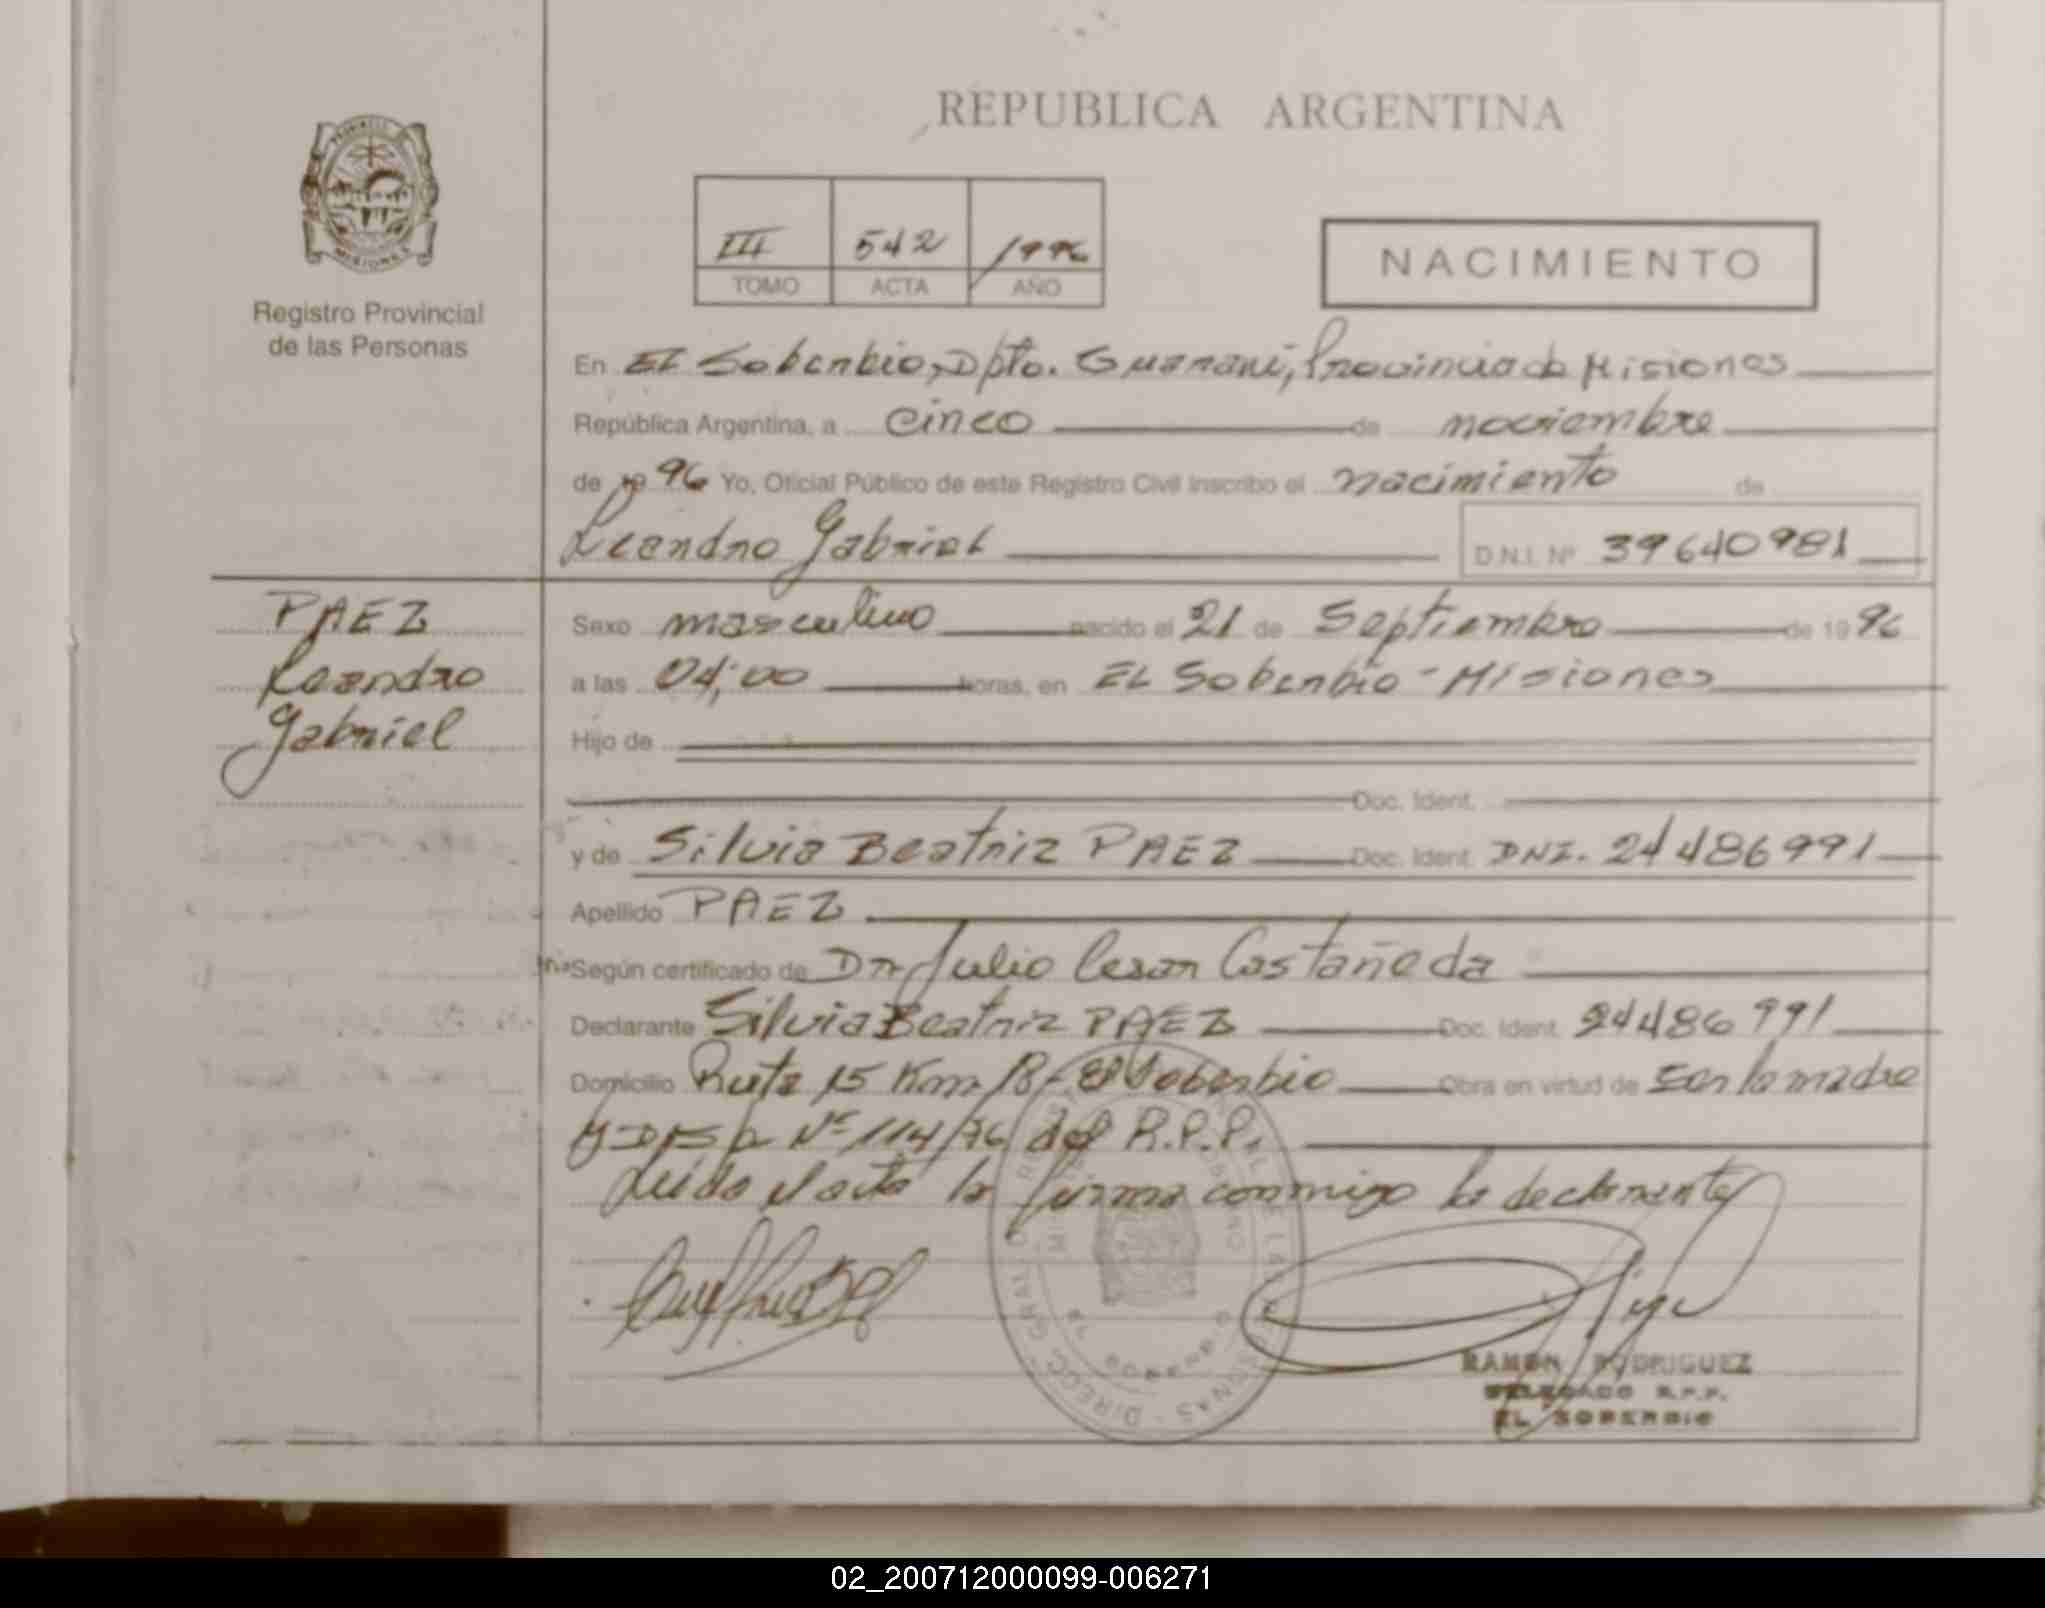 REPUBLICA ARGENTINA
PROVINCIA
MISIONES
Registro Provincial
de las Personas
III 542 1996
TOMO ACTA AÑO
NACIMIENTO
En EL Soberbio, Dpto. Guarani, Provincia de Misiones
República Argentina, a cinco de noviembre
de 1996 Yo, Oficial Público de este Registro Civil inscribo el nacimiento de
Leandro Gabriel D.N.I. Nº 39640981
PAEZ
Leandro
Gabriel
Sexo masculino nacido el 21 de Septiembre de 1996
a las 04;00 horas, en EL Soberbio - Misiones
Hijo de
Doc. Ident.
y de Silvia Beatriz PAEZ Doc. Ident. DNI. 24486991
Apellido PAEZ
Según certificado de Dr Julio Cesar Castañeda
Declarante Silvia Beatriz PAEZ Doc. Ident. 24486991
Domicilio Ruta 15 Km 18 - El Soberbio Obra en virtud de ser la madre
Nº 114/76 del R.P.P.
Leida el acta la firma conmigo la declarante
RAMON RODRIGUEZ
DELEGADO R.P.P.
EL SOBERBIO
02_200712000099-006271